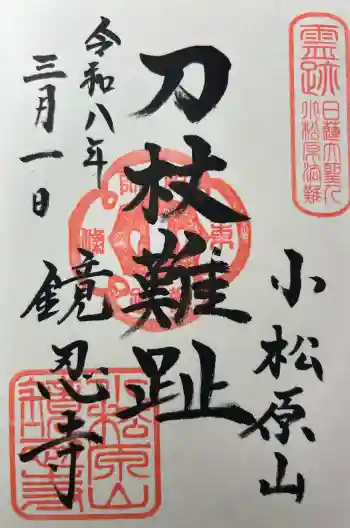 霊跡
日蓮大聖人
小松原法難
小松原山
刀杖難趾
令和八年
三月一日
鏡忍寺
小松原山
鏡忍寺